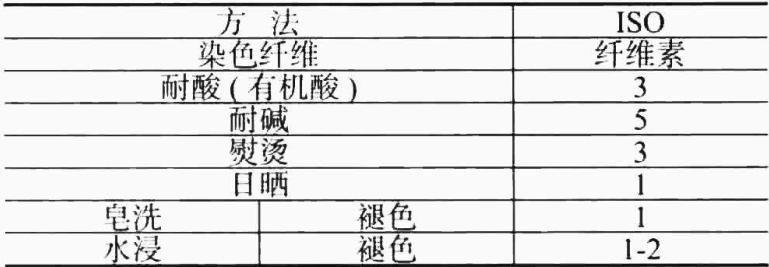 方 法 ISO
染色纤维 纤维素
耐酸(有机酸) 3
耐碱 5
熨烫 3
日晒 1
皂洗 褪色 1
水浸 褪色 1-2